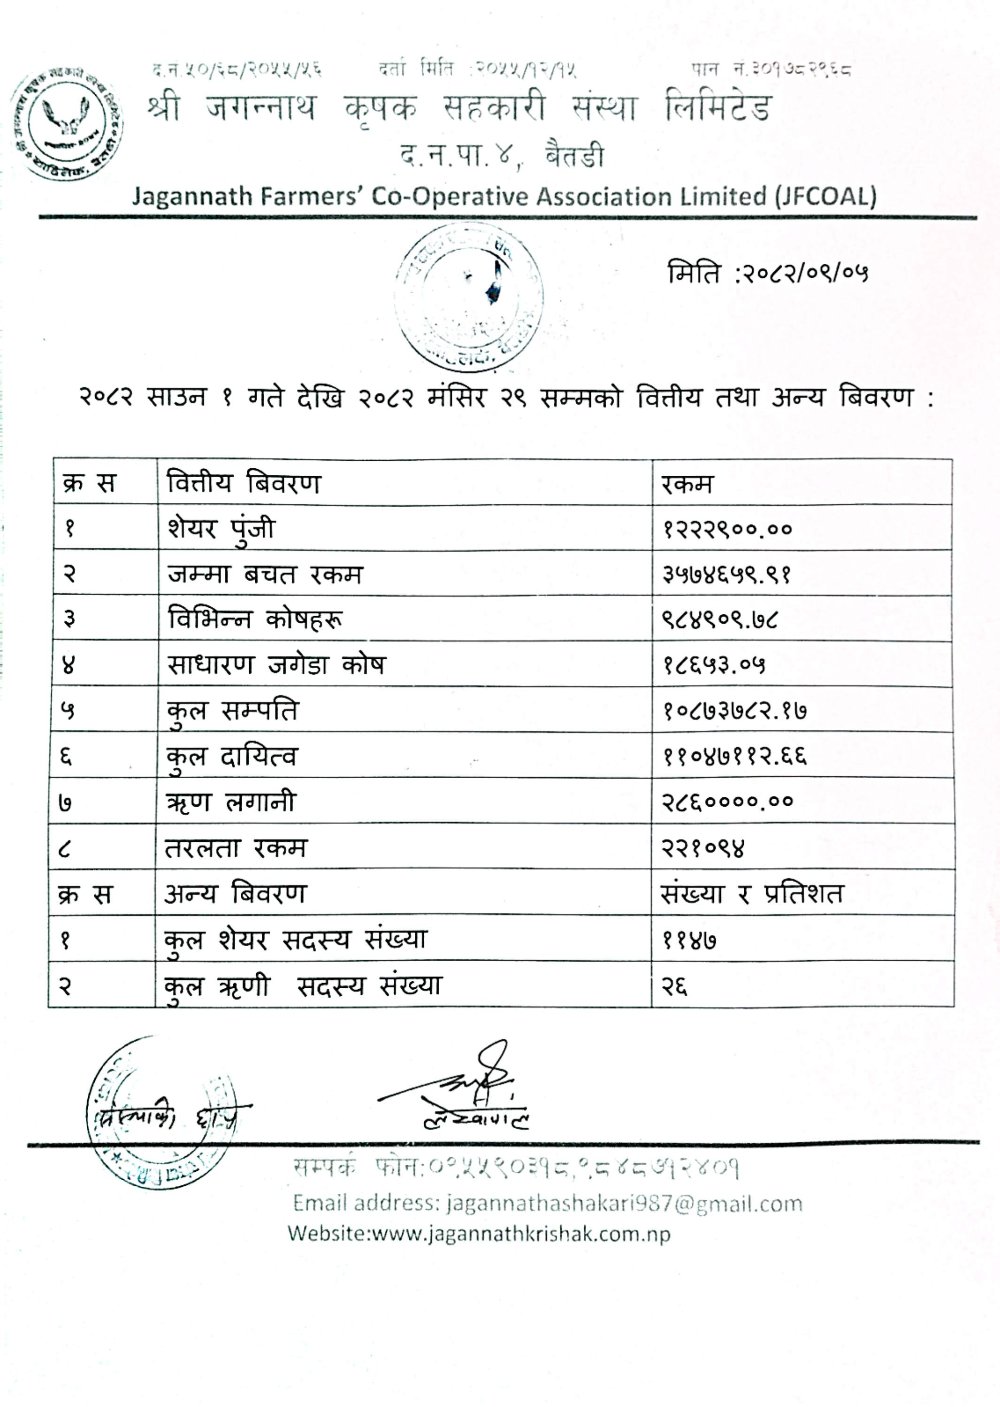 द.न.५०/६८/२०५५/५६ दर्ता मिति :२०५५/१२/१५ पान न.३०१७८२९६८
श्री जगन्नाथ कृषक सहकारी संस्था लिमिटेड
द.न.पा.४, बैतडी
Jagannath Farmers’ Co-Operative Association Limited (JFCOAL)
मिति :२०८२/०९/०५
२०८२ साउन १ गते देखि २०८२ मंसिर २९ सम्मको वित्तीय तथा अन्य बिवरण :
क्र स वित्तीय बिवरण रकम
१ शेयर पुंजी १२२२९००.००
२ जम्मा बचत रकम ३५७४६५९.९१
३ विभिन्न कोषहरू ९८४९०९.७८
४ साधारण जगेडा कोष १८६५३.०५
५ कुल सम्पति १०८७३७८२.१७
६ कुल दायित्व ११०४७११२.६६
७ ऋण लगानी २८६००००.००
८ तरलता रकम २२१०९४
क्र स अन्य बिवरण संख्या र प्रतिशत
१ कुल शेयर सदस्य संख्या ११४७
२ कुल ऋणी सदस्य संख्या २६
संस्थाको छाप लेखापाल
सम्पर्क फोन:०९५५९०३१८,९८४८७१२४०१
Email address: jagannathashakari987@gmail.com
Website:www.jagannathkrishak.com.np